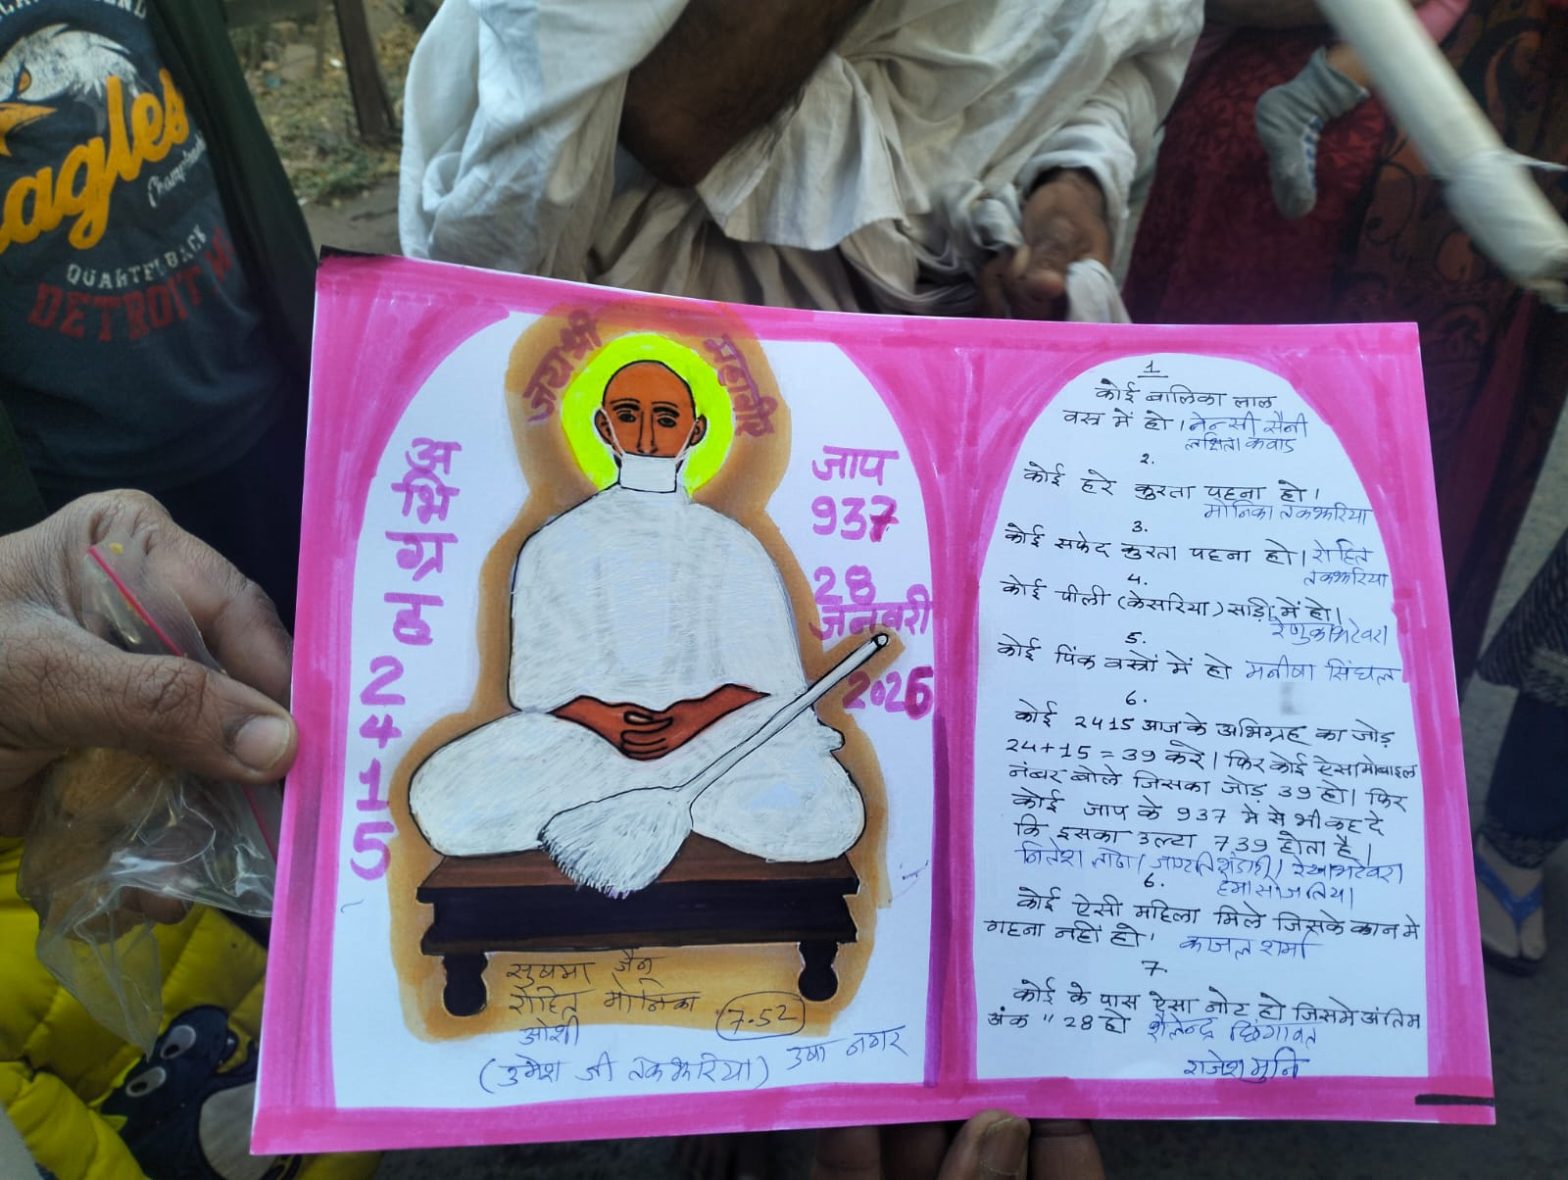 Eagles
QUARTERBACK
DETROIT
जय श्री
अभिग्रह
2415
जाप
937
28
जनवरी
2026
सुषमा जैन
रोहित मोनिका
7.52
ओशी
(उमेश जी तकझरिया) उषा नगर
1
कोई बालिका लाल
वस्त्र में हो। नेन्सी सैनी
2.
कोई हरे कुरता पहना हो।
मोनिका तकझरिया
3.
कोई सफेद कुरता पहना हो। रोहित
तकझरिया
4.
कोई पीली (केसरिया) साड़ी में हो।
रेणुका भटेवरा
5.
कोई पिंक वस्त्रों में हो मनीषा सिंघल
6.
कोई 2415 आज के अभिग्रह का जोड़
24+15=39 करे। फिर कोई ऐसा मोबाइल
नंबर बोले जिसका जोड़ 39 हो। फिर
कोई जाप के 937 में से भी कह दे
कि इसका उल्टा 739 होता है।
6.
कोई ऐसी महिला मिले जिसके कान मे
गहना नहीं हो। काजल शर्मा
7.
कोई के पास ऐसा नोट हो जिसमे अंतिम
अंक "28 हो शैलेन्द्र छिंगावत
राजेश मुनि